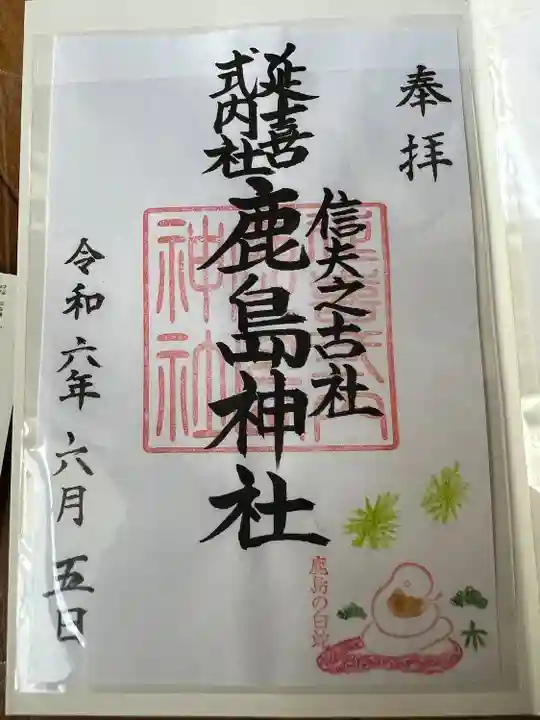 奉拝
信夫之古社
延喜
式内社
鹿島神社
令和六年六月五日
神社
鹿島の白蛇
木